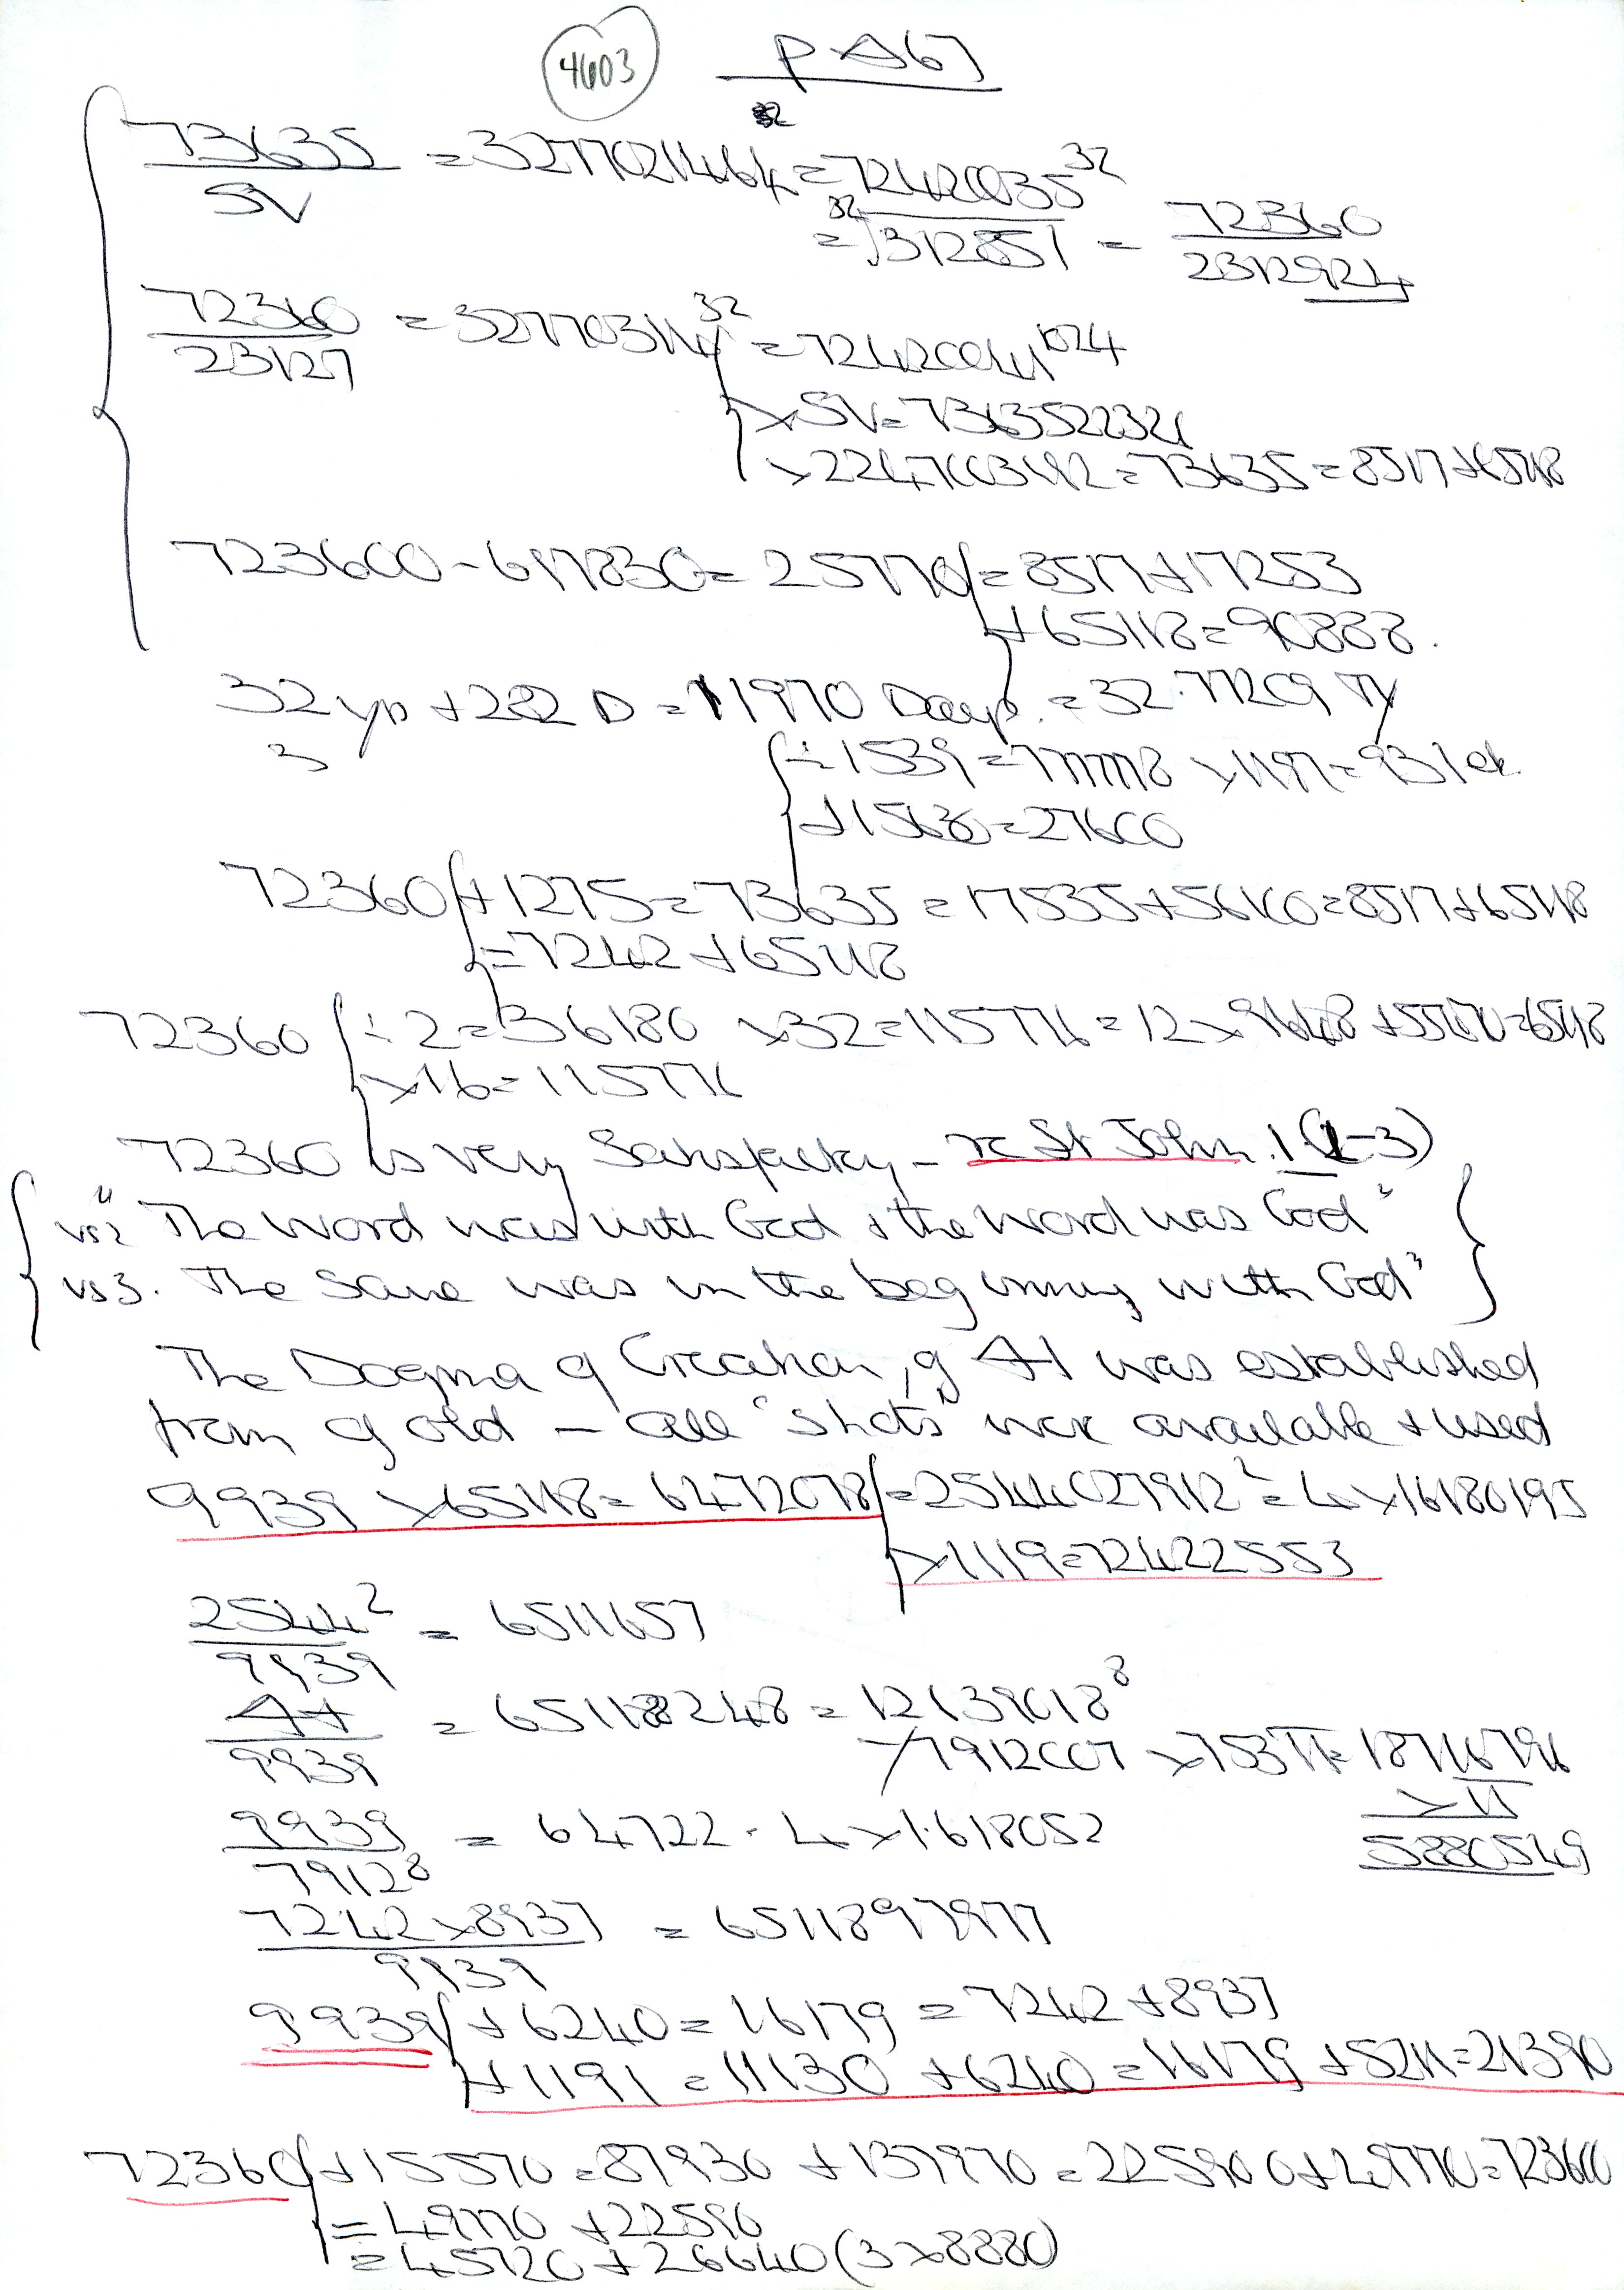 4603
73635 / SV = 3277021464 = 72420035^32
= 32√312851 = 72360 / 2312924
72360 / 23127 = 327703114^32 = 72420041^1024
× SV = 736352232
= 73635 = 8517 + 65118
= 25770 = 8517 + 17253
+ 65118 = 90888.
32 yrs + 282 D = 11970 Days = 32.77209 TY
3
÷ 1539 = 777778 × 1197 = 931 ek.
+ 15630 = 27600
72360 + 1275 = 73635 = 17535 + 56100 = 8517 + 65118
= 7242 + 65118
72360 ÷ 2 = 36180 × 32 = 115776 = 12 × 9648 + 55470 = 65118
× 16 = 115776
72360 is very Satisfactory - re St John. 1 (1-3)
vs2 "The word was with God + the word was God"
vs3. The same was in the beginning with God"
The Dogma of Creation, of A1 was established
from of old - all "shots" were available + used
9939 × 65118 = 6472078 = 2544027912^2 = 4 × 16180195
× 1119 = 72422553
2544^2 / 9939 = 6511657
/ 9939 = 651188248 = 12139018^8
7912007 × 753π = 18716796
× π
5880549
9939 / 7912^8 = 64722 . 4 × 1.618052
7242 × 8937 / 9939 = 6511897977
9939 + 6240 = 16179 = 7242 + 8937
+ 1191 = 11130 + 6240 = 16179 + 5211 = 21390
72360 + 15570 = 87930 + 137970 = 225900 + 49770 = 723600
= 49770 + 22590
= 45720 + 26640 (3 × 8880)